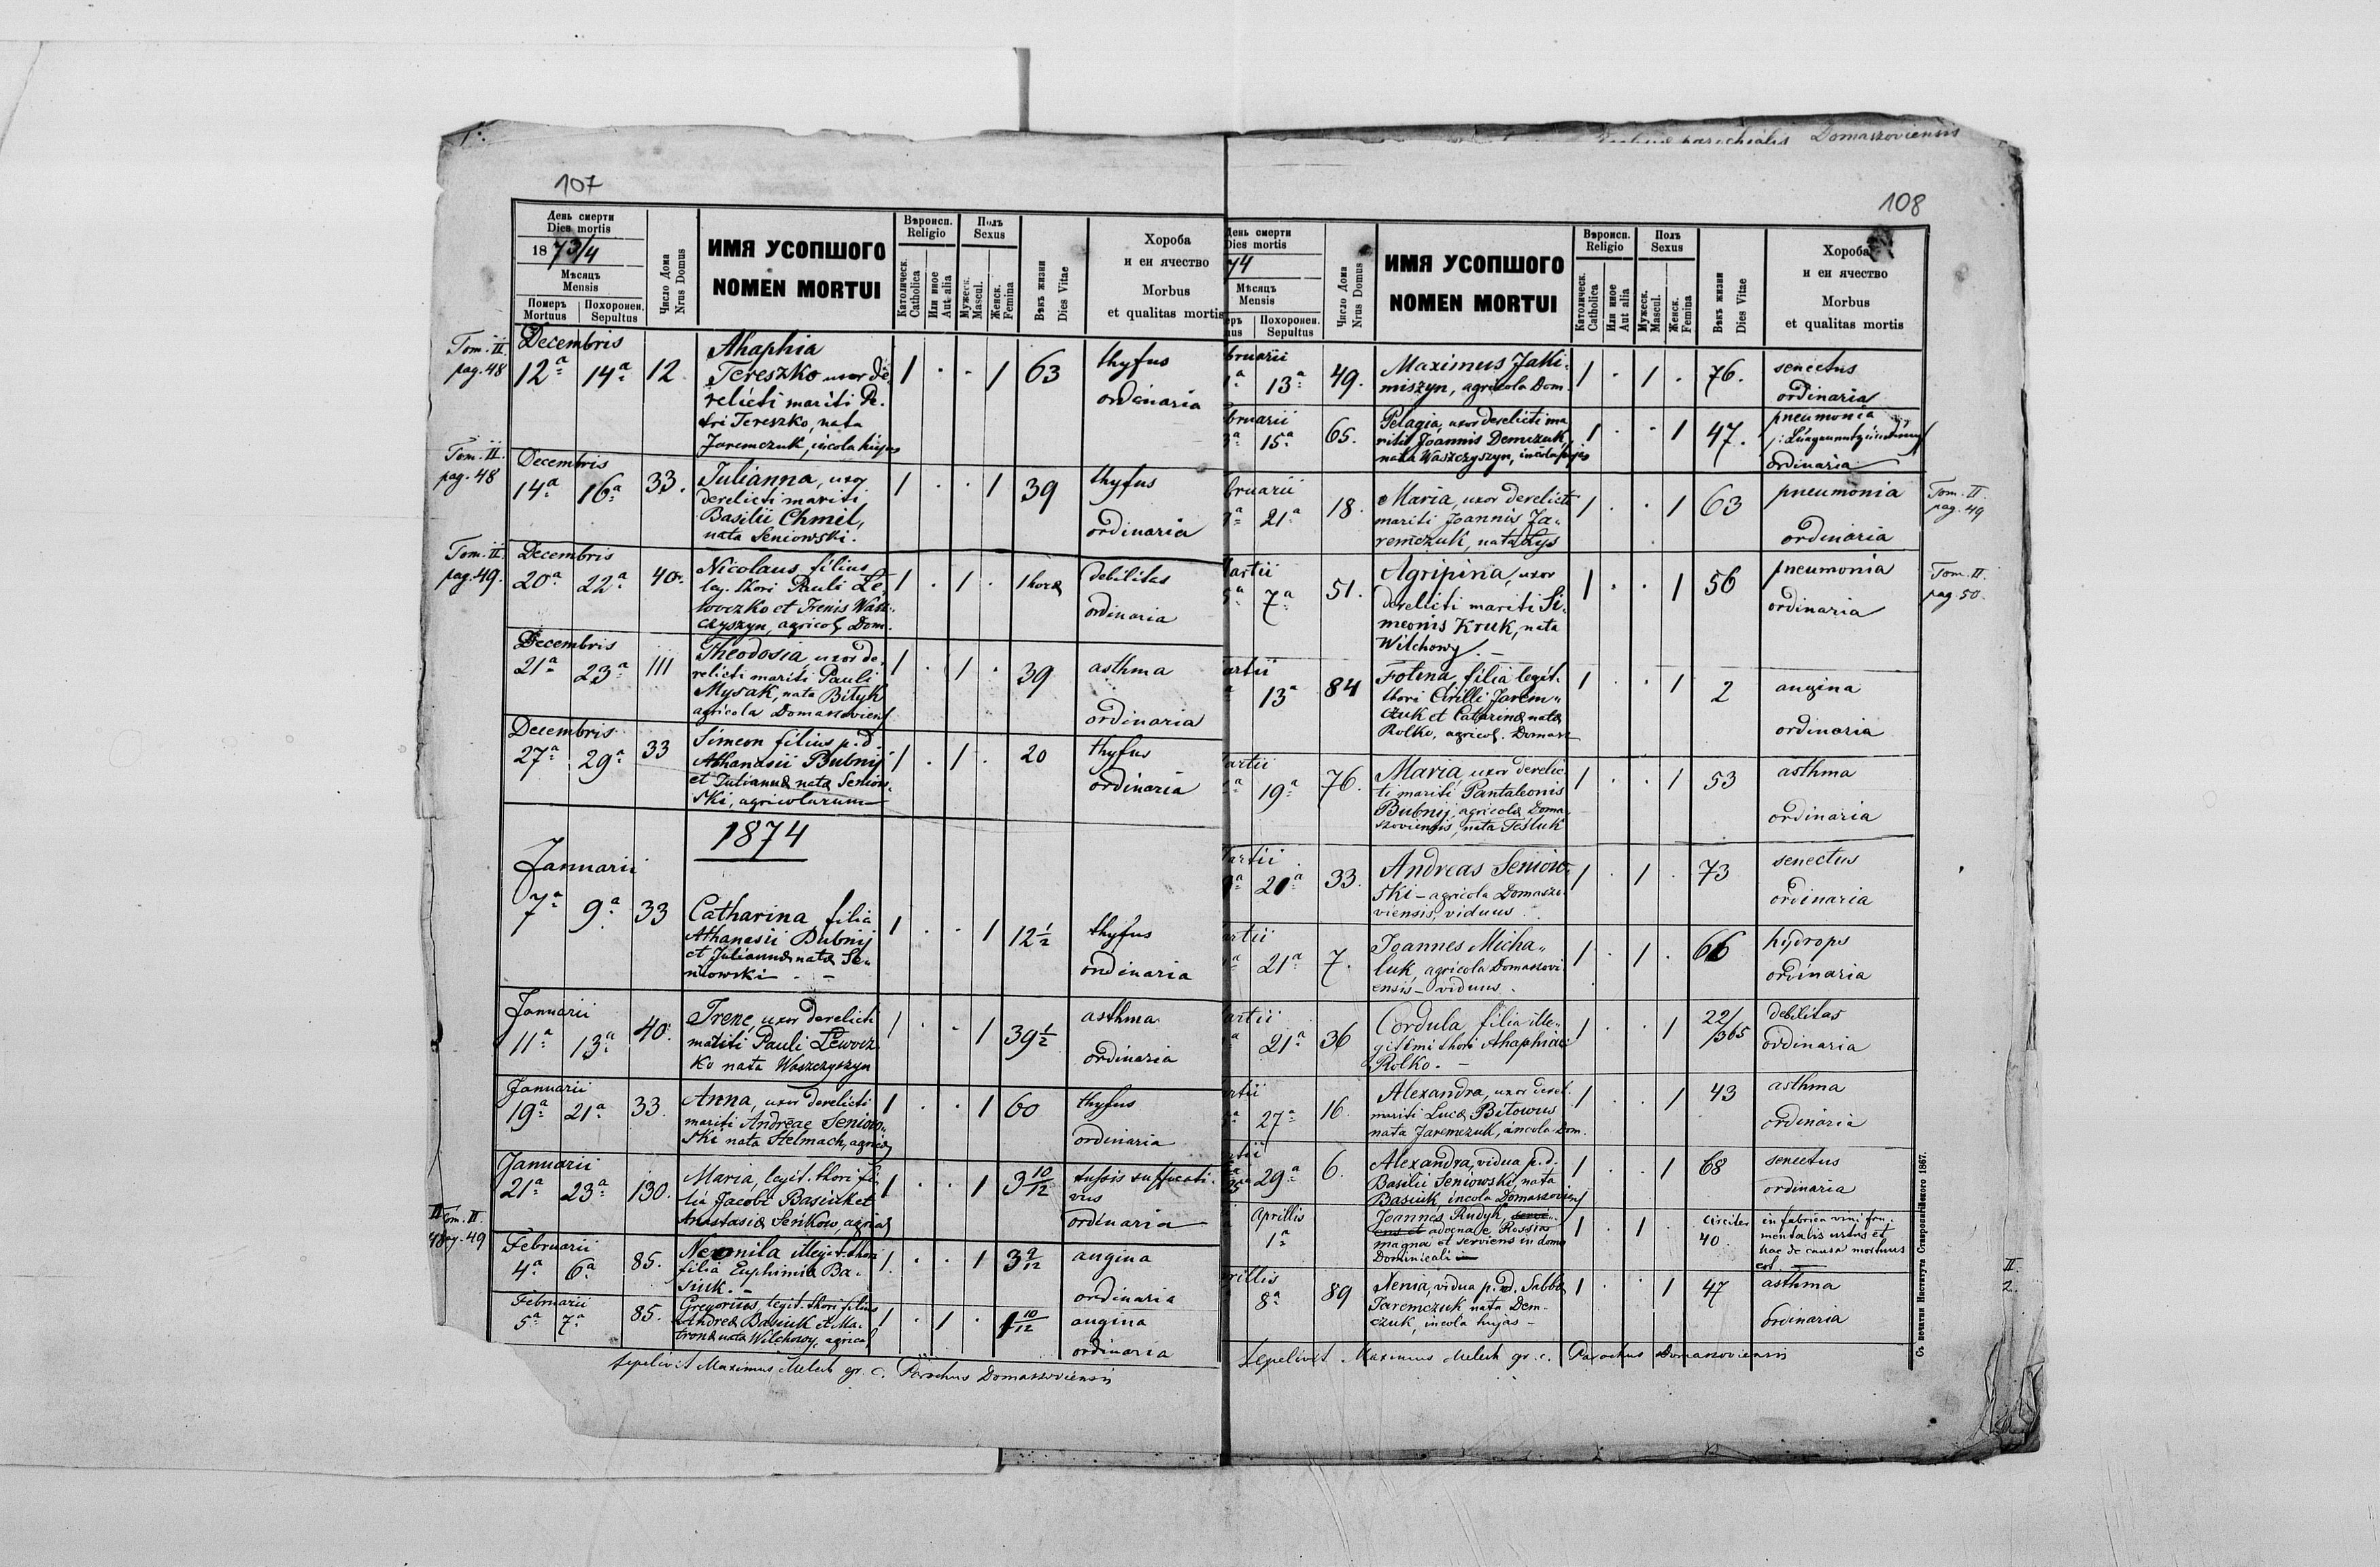 107
День смерти
Dies mortis
1873/4
Мѣсяцъ
Mensis
Померъ
Mortuus
Похоронен.
Sepultus
Число Дома
Nrus Domus
ИМЯ УСОПШОГО
NOMEN MORTUI
Вѣроисп.
Religio
Католическ.
Catholica
Или иное
Aut alia
Полъ
Sexus
Мужеск.
Mascul.
Женск.
Femina
Вѣкъ жизни
Dies Vitae
Хороба
и еи ячество
Morbus
et qualitas mortis
Tom. II.
pag. 48
Decembris
12a 14a 12
Ahaphia
Tereszko uxor de
relicti mariti Pe.
tri Tereszko, nata
Jaremczuk, incola hujus
1 . . 1 63
thyfus
ordinaria
Tom. II.
pag. 48
Decembris
14a 16a 33.
Julianna, uxor
derelicti mariti
Basilii Chmil,
nata Seniowski.
1 . . 1 39
thyfus
ordinaria
Tom. II.
pag. 49.
Decembris
20a 22a 40.
Nicolaus filius
leg. thori Pauli Le,
woczko et Irenis Wasz
czyszyn, agricol. Dom.
1 . 1 . 1 hora
debilitas
ordinaria
Decembris
21a 23a 111
Theodosia, uxor de,
relicti mariti Pauli
Mysak, nata Bityk
agricola Domaszoviens
1 . 1 . 39
asthma
ordinaria
Decembris
27a 29a 33
Simeon filius p. d.
Athanasii Bubnij
et Julianna nata Seniow.
ski, agricolarum
1 . 1 . 20
thyfus
ordinaria
1874
Januarii
7a 9a 33
Catharina filia
Athanasii Bubnij
et Julianna nata Se,
niowski
1 . . 1 12 1/2
thyfus
ordinaria
Januarii
11a 13a 40.
Irene, uxor derelicti
mariti Pauli Lewocz
ko nata Waszczyszyn
1 . . 1 39 1/2
asthma
ordinaria
Januarii
19a 21a 33.
Anna, uxor derelicti
mariti Andreae Seniow.
ski nata Stelmach, agricol
1 . . 1 60
thyfus
ordinaria
Januarii
21a 23a 130.
Maria, legit. thori fi
lia Jacobi Basiuk et
Anastasia Senkow, agricol
1 . . 1 3 10/12
tussis suffocati.
vus
ordinaria
Tom. II.
pag. 49
Februarii
4a 6a 85.
illegit. thori
filia Euphimia Ba.
siuk. –
1 . . 1 3 9/12
angina
ordinaria
Februarii
5a 7a 85.
Gregorius, legit. thori filius
Andrea Basiuk et Ma.
trona nata Wilchowy, agricol
1 . 1 . 1 10/12
angina
ordinaria
Sepelivit Maximus Melech gr. c. Parochus Domaszoviensis
parochialis Domaszoviensis
108
День смерти
Dies mortis
74
Мѣсяцъ
Mensis
Похоронен.
Sepultus
Число Дома
Nrus Domus
ИМЯ УСОПШОГО
NOMEN MORTUI
Вѣроисп.
Religio
Католическ.
Catholica
Или иное
Aut alia
Полъ
Sexus
Мужеск.
Mascul.
Женск.
Femina
Вѣкъ жизни
Dies Vitae
Хороба
и еи ячество
Morbus
et qualitas mortis
bruarii
13a 49.
Maximus Jakki-
miszyn, agricola Dom.
1 . 1 . 76.
senectus
ordinaria
bruarii
15a 65.
Pelagia, uxor derelicti ma
riti Joannis Demczuk,
nata Waszczyszyn, incola hujas
1 . . 1 47.
pneumonia
ordinaria
bruarii
21a 18.
Maria, uxor derelicti
mariti Joannis Ja,
remczuk, nata Lys
1 . . 1 63
pneumonia
ordinaria
Tom. II.
pag. 49
artii
7a 51.
Agripina, uxor
derelicti mariti Si,
meonis Kruk, nata
Wilchowy. –
1 . . 1 56
pneumonia
ordinaria
Tom. II.
pag. 50.
artii
13a 84
Fotina, filia legit.
thori Cirilli Jarem"
czuk et Catharina nata
Rolko, agricol. Domasz
1 . . 1 2
angina
ordinaria
artii
19a 76.
Maria, uxor derelic
ti mariti Pantaleonis
Bubnij, agricola Doma
szoviensis, nata Tesluk
1 . . 1 53
asthma
ordinaria
artii
20a 33.
Andreas Seniow.
ski – agricola Domaszo
viensis, viduus
1 . 1 . 73
senectus
ordinaria
artii
21a 7.
Joannes Micha"
luk, agricola Domaszovi
ensis – viduus.
1 . 1 . 66
hydrops
ordinaria
artii
21a 36
Cordula, filia ille,
gitimi thori Ahaphiae
Rolko. –
1 . . 1 22/365
debilitas
ordinaria
rtii
27a 16.
Alexandra, uxor derel.
mariti Luca Bitowus
nata Jaremczuk, incola Dom.
1 . . 1 43
asthma
ordinaria
rtii
29a 6.
Alexandra, vidua p. d.
Basilii Seniowski, nata
Basiuk, incola Domaszovien
1 . . 1 68
senectus
ordinaria
Aprillis
1a
Joannes Rudyk,
advena e Rossia
magna et serviens in domo
Dominicali
1 . 1 . circiter
40.
in fabrica vini fru,
mentalis ustus et
hac de causa mortuus
est
rillis
8a 89
Xenia, vidua p. d. Sabba
Jaremczuk nata Dem-
czuk, incola hujas –
1 . . 1 47
asthma
ordinaria
II.
2.
Sepelivit Maximus Melech gr. c. Parochus Domaszoviensis
Съ печатни Института Ставропигійского 1867.